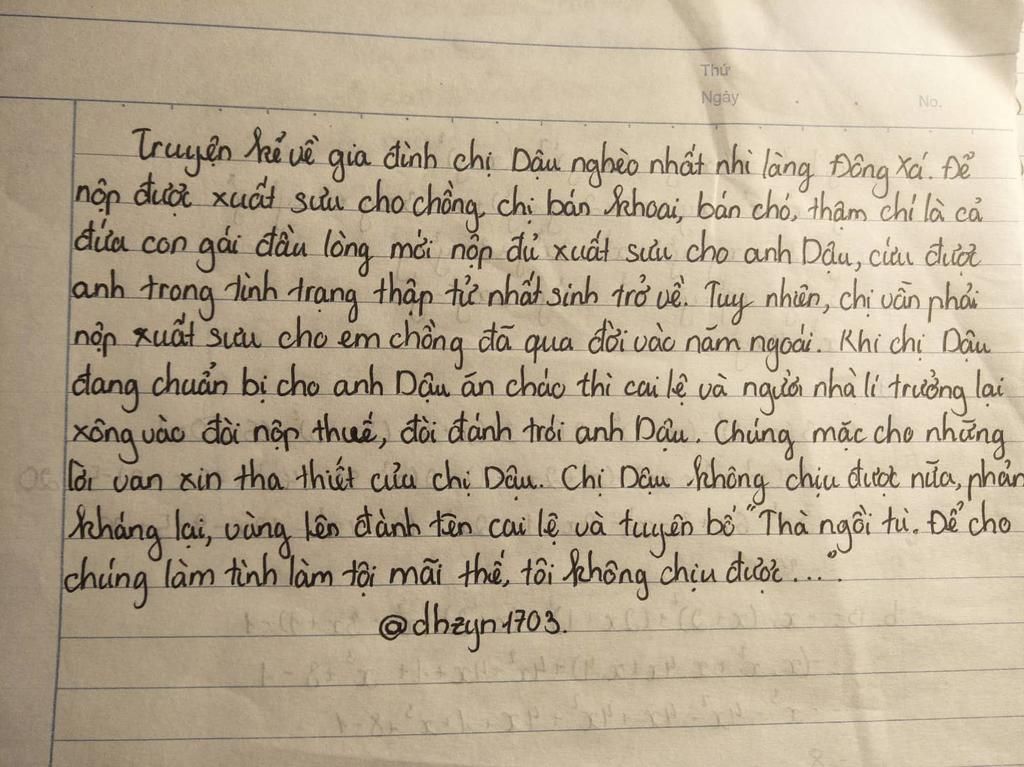 Thứ
Ngày
No.
Truyện kể về gia đình chị Dậu nghèo nhất nhì làng Đông Xá. Để
nộp được xuất sưu cho chồng, chị bán khoai, bán chó, thậm chí là cả
đứa con gái đầu lòng mới nộp đủ xuất sưu cho anh Dậu, cứu được
anh trong tình trạng thập tử nhất sinh trở về. Tuy nhiên, chị vẫn phải
nộp xuất sưu cho em chồng đã qua đời vào năm ngoái. Khi chị Dậu
đang chuẩn bị cho anh Dậu ăn cháo thì cai lệ và người nhà lí trưởng lại
xông vào đòi nộp thuế, đòi đánh trói anh Dậu. Chúng mặc cho những
lời van xin tha thiết của chị Dậu. Chị Dậu không chịu được nữa, phản
kháng lại, vùng lên đánh tên cai lệ và tuyên bố "Thà ngồi tù. Để cho
chúng làm tình làm tội mãi thế, tôi không chịu được...".
@dhzyn1703.